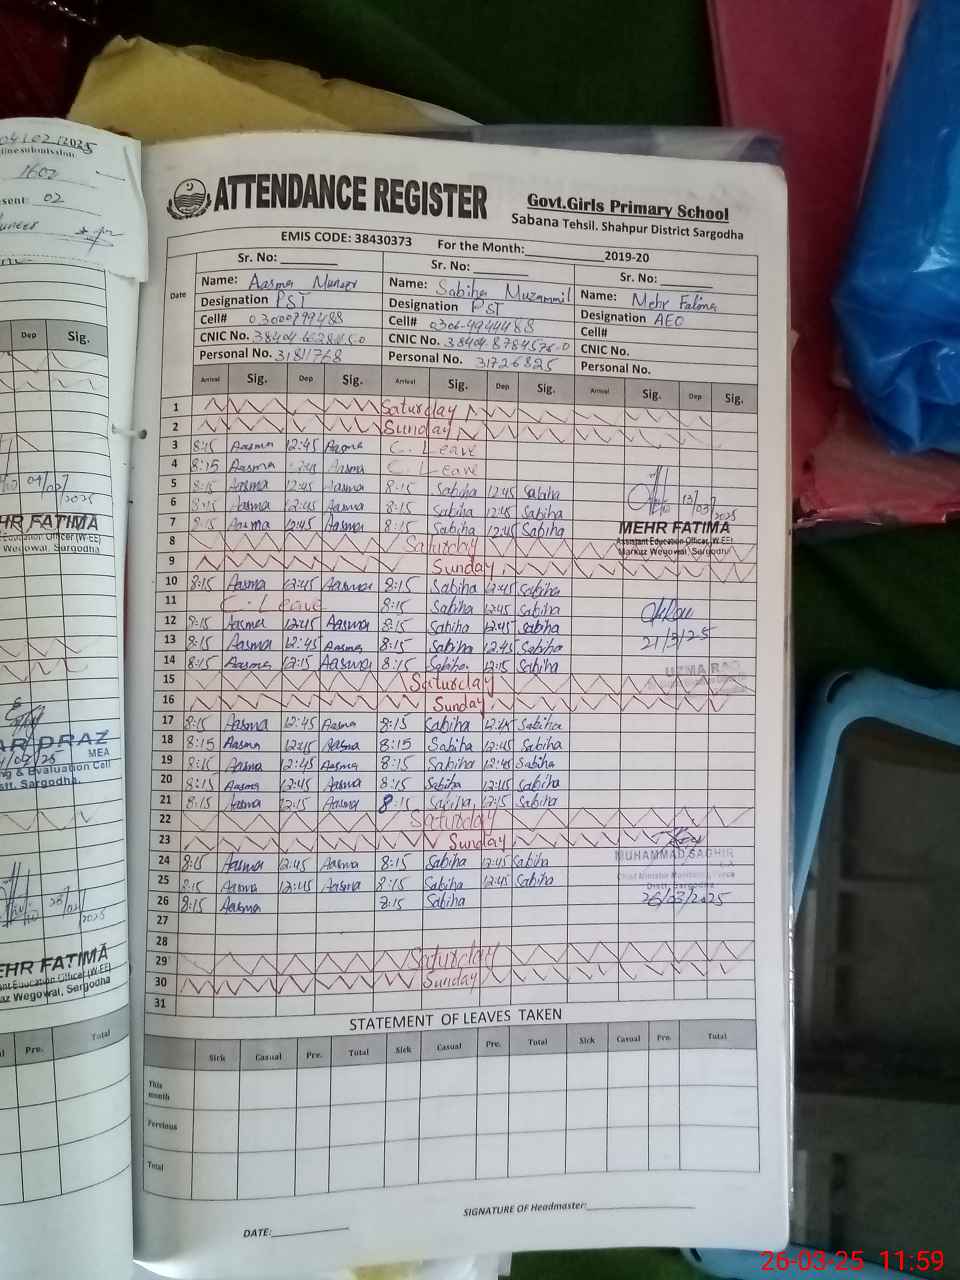 04/02/2025
1602
02
Dep Sig.
MEHR FATIMA
Wegowal, Sargodha
MEA
Evaluation Cell
Sargodha.
MEHR FATIMA
Wegowal, Sargodha
Pre. Total
ATTENDANCE REGISTER
Govt.Girls Primary School
Sabana Tehsil. Shahpur District Sargodha
EMIS CODE: 38430373 For the Month: 2019-20
Date Sr. No: Sr. No: Sr. No:
Name: Aasma Muneer Name: Sabiha Muzammil Name: Mehr Fatima
Designation PST Designation PST Designation AEO
Cell# Cell# 0306-4944488 Cell#
CNIC No. CNIC No. CNIC No.
Personal No. 31811768 Personal No. 31726825 Personal No.
Arrival Sig. Dep Sig. Arrival Sig. Dep Sig. Arrival Sig. Dep Sig.
1 Saturday
2 Sunday
3 8:15 Aasma 12:45 Aasma C. Leave
4 8:15 Aasma Aasma C. Leave
5 8:15 Aasma 12:45 Aasma 8:15 Sabiha 12:45 Sabiha 13/03/2025
6 8:15 Aasma 12:45 Aasma 8:15 Sabiha 12:45 Sabiha
7 8:15 Aasma 12:45 Aasma 8:15 Sabiha 12:45 Sabiha MEHR FATIMA
8 Saturday Assistant Education Officer (W-EE)
9 Sunday Markaz Wegowal, Sargodha
10 8:15 Aasma 12:45 Aasma 8:15 Sabiha 12:45 Sabiha
11 C. Leave 8:15 Sabiha 12:45 Sabiha
12 8:15 Aasma 12:45 Aasma 8:15 Sabiha 12:45 Sabiha
13 8:15 Aasma 12:45 Aasma 8:15 Sabiha 12:45 Sabiha 21/3/25
14 8:15 Aasma 12:15 Aasma 8:15 Sabiha 12:15 Sabiha
15 Saturday
16 Sunday
17 8:15 Aasma 12:45 Aasma 8:15 Sabiha 12:45 Sabiha
18 8:15 Aasma 12:45 Aasma 8:15 Sabiha 12:45 Sabiha
19 8:15 Aasma 12:45 Aasma 8:15 Sabiha 12:45 Sabiha
20 8:15 Aasma 12:45 Aasma 8:15 Sabiha 12:45 Sabiha
21 8:15 Aasma 12:15 Aasma 8:15 Sabiha 12:15 Sabiha
22 Saturday
23 Sunday
24 8:15 Aasma 12:45 Aasma 8:15 Sabiha 12:45 Sabiha MUHAMMAD SAGHIR
25 8:15 Aasma 12:45 Aasma 8:15 Sabiha 12:45 Sabiha Chief Minister Monitoring Force
Distt. Sargodha
26 8:15 Aasma 8:15 Sabiha 26/03/2025
27
28
29 Saturday
30 Sunday
31
STATEMENT OF LEAVES TAKEN
Sick Casual Pre. Total Sick Casual Pre. Total Sick Casual Pre. Total
This month
Pervious
Total
SIGNATURE OF Headmaster:
DATE:
26-03-25 11:59